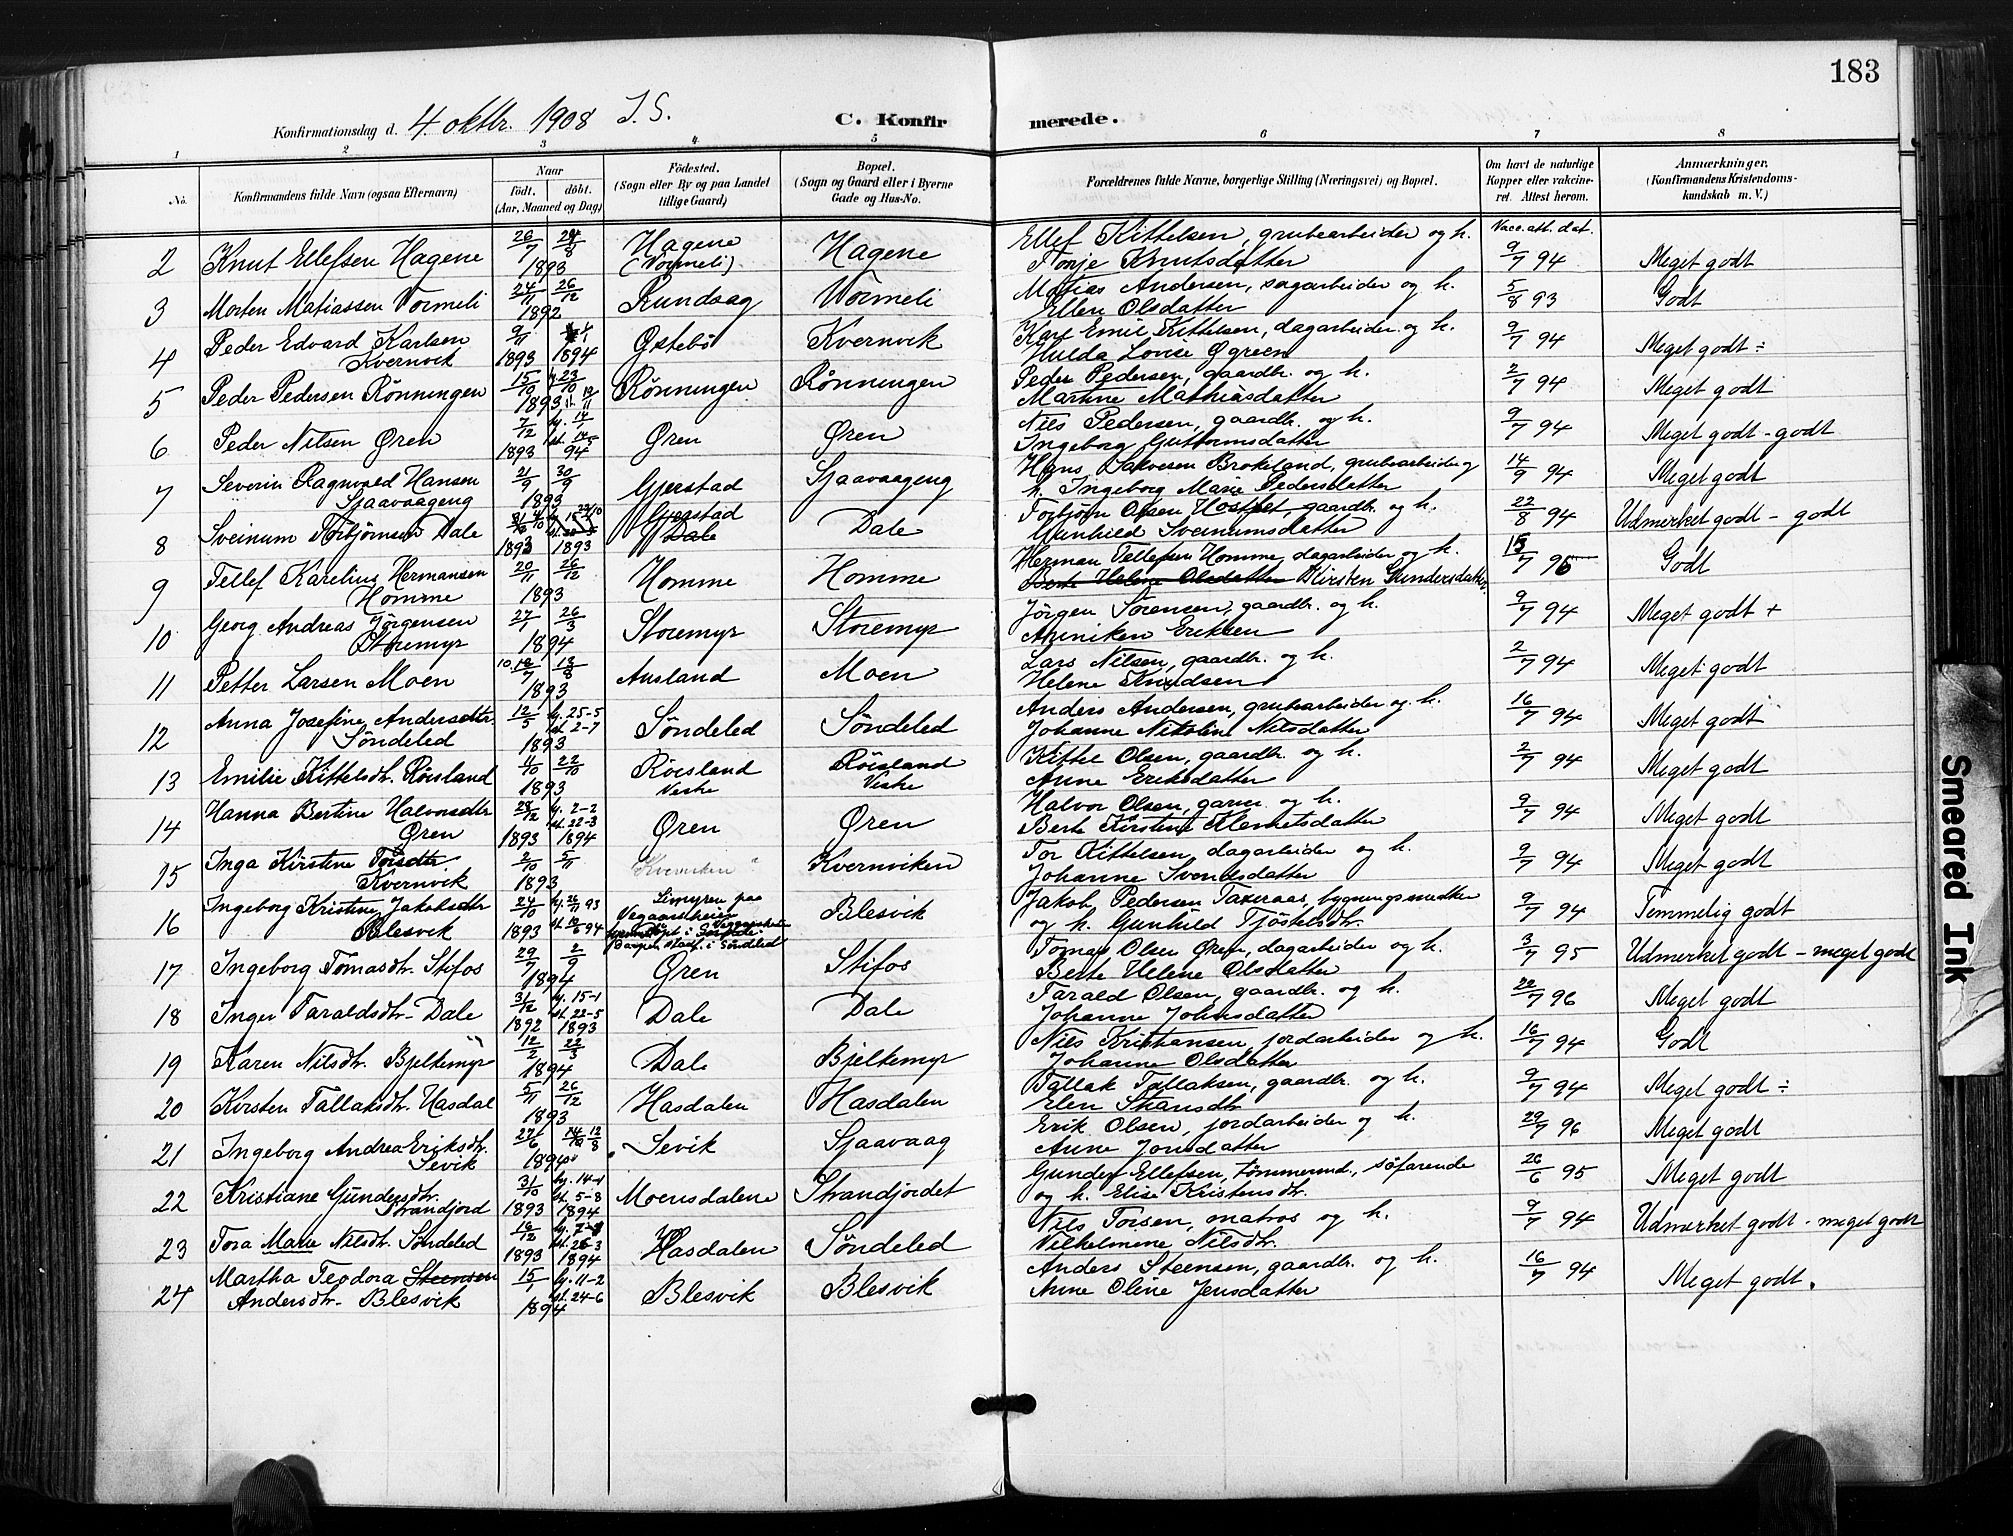 183
Konfirmationsdag d. 4 oktbr. 1908 I. S. C. Konfirmerede.
1 2 3 4 5 6 7 8
No. Konfirmandens fulde Navn (ogsaa Efternavn) Naar født. døbt. (Aar, Maaned og Dag) Fødested. (Sogn eller By og paa Landet tillige Gaard) Bopæl. (Sogn og Gaard eller i Byerne Gade og Hus-No. Forældrenes fulde Navne, borgerlige Stilling (Næringsvei) og Bopæl. Om havt de naturlige Kopper eller vakcineret. Attest herom. Anmærkninger. (Konfirmandens Kristendomskundskab m. V.)
Vacc. att. dat.
2 Knut Ellefsen Hagene 26/7 1893 Hagene (Vormeli) Hagene Ellef Kittelsen, grubearbeider og h. Tonje Knutsdatter 9/7 94 Meget godt
3 Morten Matiassen Vormeli 24/11 26/12 1892 Rundsag Vormeli Matias Andersen, sagarbeider og h. Ellen Olsdatter 5/8 93 Godt
4 Peder Edvard Karlsen Kvernvik 9/11 1893 1894 Østebø Kvernvik Karl Emil Kittelsen, dagarbeider og h. Hulda Lovise Øgreen 9/7 94 Meget godt ÷
5 Peder Pedersen Rønningen 15/10 23/10 1893 Rønningen Rønningen Peder Pedersen, gaardbr. og h. Martine Mathiasdatter 2/7 94 Meget godt
6 Peder Nilsen Øren 7/12 1893 94 Øren Øren Nils Pedersen, gaardbr. og h. Ingeborg Guttormsdatter 9/7 94 Meget godt - godt
7 Severin Ragnvald Hansen Sjaavaageng 21/9 30/9 1893 Gjerstad Sjaavaageng Hans Salvesen Brokeland, grubearbeider og h. Ingeborg Marie Pedersdatter 14/9 94 Meget godt
8 Sveinum Torbjørnsen Dale 1893 1893 Gjerstad Dale Dale Torbjørn Olsen gaardbr. og h. Gunhild Sveinumsdatter 22/8 94 Udmerket godt - godt
9 Tellef Karelius Hermansen Homme 20/11 26/12 1893 Homme Homme Herman Tellefsen Homme, dagarbeider og h. Berte Helene Olsdatter Kirsten Gundersdatter 15/7 95 Godt
10 Georg Andreas Jørgensen Storemyr 27/1 26/3 1894 Storemyr Storemyr Jørgen Sørensen, gaardbr. og h. Anniken Eriksen 9/7 94 Meget godt +
11 Petter Larsen Moen 13/8 1893 Ausland Moen Lars Nilsen, gaardbr. og h. Helene Knudsen 2/7 94 Meget godt
12 Anna Josefine Andersdtr. Søndeled 12/5 hj. 25-5 st. 2-7 1893 Søndeled Søndeled Anders Andersen, grubearbeider og. h. Johanne Nikoline Nilsdatter 16/7 94 Meget godt
13 Emilie Kittelsdtr. Røisland 4/10 22/10 1893 Røisland Vestre Røisland Vestre Kittel Olsen, gaardbr. og h. Anne Eriksdatter 2/7 94 Meget godt
14 Hanna Bertine Halvorsdtr Øren 28/12 1893 hj. 2-2 st. 22-3 1894 Øren Øren Halvor Olsen, garver og h. Berte Kirstine Klemetsdatter 9/7 94 Meget godt
15 Inga Kirstine Torsdtr Kvernvik 2/10 5/11 1893 Kvernviken Kvernviken Tor Kittelsen, dagarbeider og h. Johanne Svendsdatter 9/7 94 Meget godt
16 Ingeborg Kristine Jakobsdtr Blesvik 24/10 1893 hj. 26/11 93 Limyren paa Vegaarsheien i Søndeled Blesvik Jakob Pedersen Taxeraas, bygningssnedker og h. Gunhild Tjøstelsdtr. 9/7 94 Temmelig godt
17 Ingeborg Tomasdtr. Stifos 29/7 2/9 1894 Øren Stifos Tomas Olsen Øren, dagarbeider og h. Berte Helene Olsdatter 3/7 95 Udmerket godt - meget godt
18 Inger Taraldsdtr. Dale 31/12 1892 hj. 15-1 st. 22-5 1893 Dale Dale Tarald Olsen, gaardbr. og h. Johanne Johnsdatter 22/7 96 Meget godt
19 Karen Nilsdtr. Bjeltemyr 12/2 22/3 1894 Dale Bjeltemyr Nils Kristiansen, jordarbeider og h. Johanne Olsdatter 16/7 94 Godt
20 Kirsten Tallaksdtr. Hasdal 5/11 26/12 1893 Hasdalen Hasdalen Tallak Tallaksen, gaardbr. og h. Elen 9/7 94 Meget godt ÷
21 Ingeborg Andrea Eriksdtr. Sevik 27/6 12/8 1894 Sevik Sjaavaag Erik Olsen, jordarbeider og h. Anne Jonsdatter 29/7 96 Meget godt
22 Kristiane Gundersdtr. Strandjord 31/10 1893 hj. 14-1 st. 5-8 1894 Moensdalene Strandjordet Gunder Ellefsen, tømmermd., søfarende og h. Elise Kristensdtr. 26/6 95 Meget godt
23 Tora Marie Nilsdtr. Søndeled 1893 1894 Hasdalen Søndeled Nils Torsen, matros og h. Vilhelmine Nilsdtr. 9/7 94 Udmerket godt - meget godt
24 Martha Teodora Steensen Andersdtr. Blesvik 15/1 hj. 11-2 st. 24-6 1894 Blesvik Blesvik Anders Steensen, gaardbr. og h. Anne Oline Jensdatter 16/7 94 Meget godt.
Smeared Ink